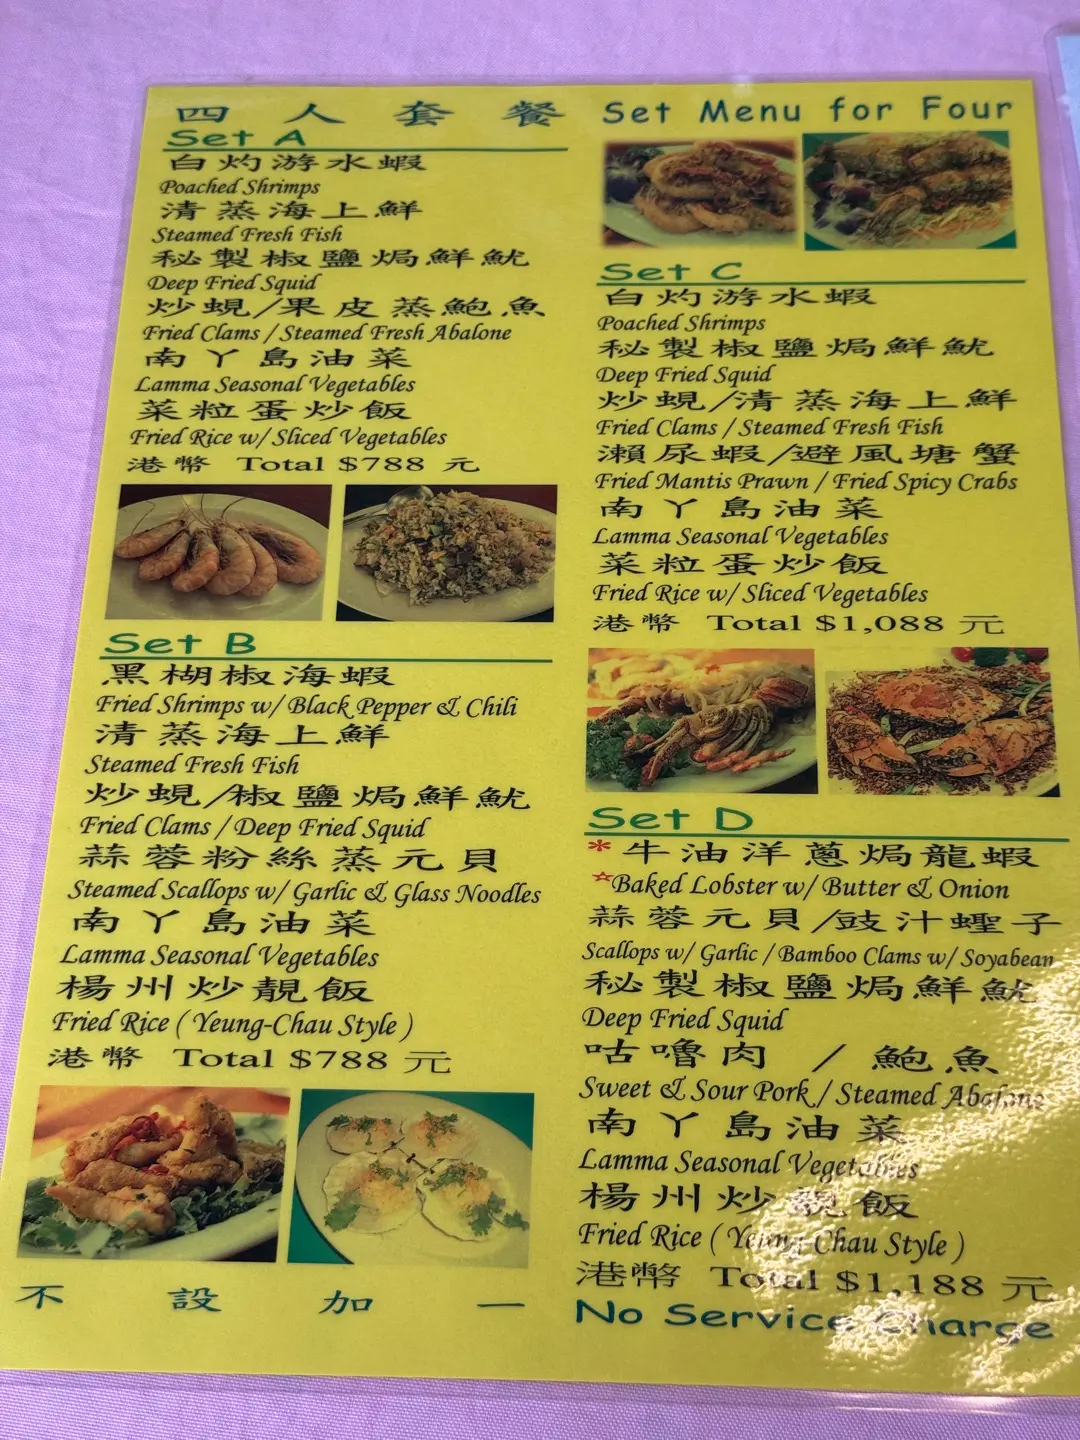 四人套餐 Set Menu for Four
Set A
白灼游水蝦
Poached Shrimps
清蒸海上鮮
Steamed Fresh Fish
秘製椒鹽焗鮮魷
Deep Fried Squid
炒蜆/果皮蒸鮑魚
Fried Clams / Steamed Fresh Abalone
南丫島油菜
Lamma Seasonal Vegetables
菜粒蛋炒飯
Fried Rice w/ Sliced Vegetables
港幣 Total $788 元
Set B
黑椒海蝦
Fried Shrimps w/ Black Pepper & Chili
清蒸海上鮮
Steamed Fresh Fish
炒蜆/椒鹽焗鮮魷
Fried Clams / Deep Fried Squid
蒜蓉粉絲蒸元貝
Steamed Scallops w/ Garlic & Glass Noodles
南丫島油菜
Lamma Seasonal Vegetables
楊州炒靚飯
Fried Rice ( Yeung-Chau Style )
港幣 Total $788 元
Set C
白灼游水蝦
Poached Shrimps
秘製椒鹽焗鮮魷
Deep Fried Squid
炒蜆/清蒸海上鮮
Fried Clams / Steamed Fresh Fish
瀨尿蝦/避風塘蟹
Fried Mantis Prawn / Fried Spicy Crabs
南丫島油菜
Lamma Seasonal Vegetables
菜粒蛋炒飯
Fried Rice w/ Sliced Vegetables
港幣 Total $1,088 元
Set D
*牛油洋蔥焗龍蝦
*Baked Lobster w/ Butter & Onion
蒜蓉元貝/豉汁蟶子
Scallops w/ Garlic / Bamboo Clams w/ Soyabean
秘製椒鹽焗鮮魷
Deep Fried Squid
咕嚕肉 / 鮑魚
Sweet & Sour Pork / Steamed Abalone
南丫島油菜
Lamma Seasonal Vegetables
楊州炒靚飯
Fried Rice ( Yeung Chau Style )
港幣 Total $1,188 元
不設加一 No Service Charge